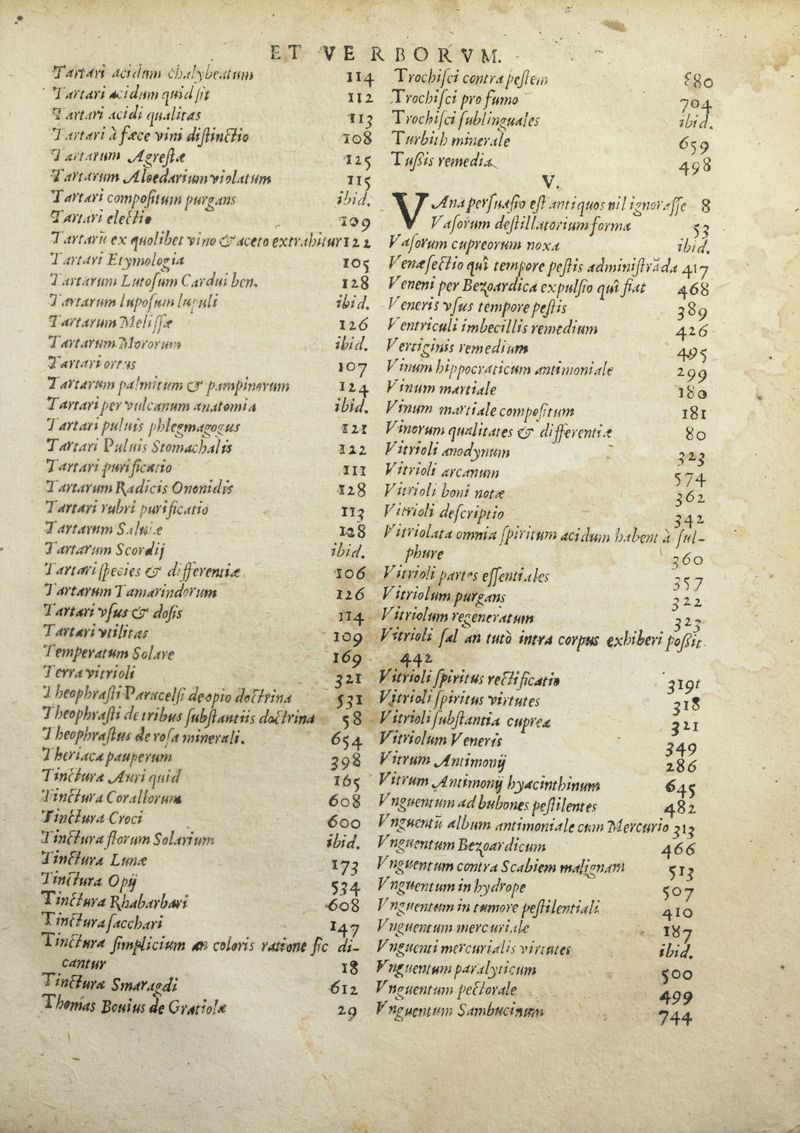 ET VERBORVM.
Tartari acidum chalybeatum 114
Tartari acidum quid ſit 112
Tartari acidi qualitas 113
Tartari à fæce vini diſtinctio 108
Tartarum Agreſtæ 125
Tartarum Aloedarium violatum 115
Tartari compoſitum purgans ibid.
Tartari electio 109
Tartarũ ex quolibet vino & aceto extrahitur 122
Tartari Etymologia 105
Tartarum Lutoſum Cardui ben. 128
Tartarum lupoſum lupuli ibid.
Tartarum Meliſſæ 126
Tartarum Mororum ibid.
Tartari ortus 107
Tartarum palmitum & pampinorum 124
Tartari per vulcanum anatomia ibid.
Tartari puluis phlegmagogus 121
Tartari Puluis Stomachalis 122
Tartari purificatio 111
Tartarum Radicis Ononidis 128
Tartari rubri purificatio 113
Tartarum Saluiæ 128
Tartarum Scordij ibid.
Tartari ſpecies & differentiæ 106
Tartarum Tamarindorum 126
Tartari vſus & doſis 114
Tartari vtilitas 109
Temperatum Solare 169
Terra vitrioli 321
Theophraſti Paracelſi de opio doctrina 531
Theophraſti de tribus ſubſtantiis doctrina 58
Theophraſtus de roſa minerali. 654
Theriaca pauperum 398
Tinctura Auri quid 165
Tinctura Corallorum 608
Tinctura Croci 600
Tinctura florum Solarium ibid.
Tinctura Lunæ 173
Tinctura Opij 534
Tinctura Rhabarbari 608
Tinctura ſacchari 147
Tinctura ſimplicium an coloris ratione ſic di-
cantur 18
Tinctura Smaragdi 612
Thomas Bouius de Gratiola 29
Trochiſci contra peſtem 380
Trochiſci pro fumo 704
Trochiſci ſublinguales ibid.
Turbith minerale 659
Tußis remedia 498
V.
VAna perſuaſio eſt antiquos nil ignoraſſe 8
Vaſorum deſtillatorium forma 53
Vaſorum cupreorum noxa ibid.
Venæſectio quî tempore peſtis adminiſträda 417
Veneni per Bezoardica expulſio quî fiat 468
Veneris vſus tempore peſtis 389
Ventriculi imbecillis remedium 426
Vertiginis remedium 495
Vinum hippocraticum antimoniale 299
Vinum martiale 180
Vinum martiale compoſitum 181
Vinorum qualitates & differentiæ 80
Vitrioli anodynum 323
Vitrioli arcanum 574
Vitrioli boni notæ 362
Vitrioli deſcriptio 342
Vitriolata omnia ſpiritum acidum habent à ſul-
phure 360
Vitrioli partes eſſentiales 357
Vitriolum purgans 322
Vitriolum regeneratum 323
Vitrioli ſal an tutò intra corpus exhiberi poßit
442
Vitrioli ſpiritus rectificatio 319
Vitrioli ſpiritus virtutes 318
Vitrioli ſubſtantia cuprea 321
Vitriolum Veneris 349
Vitrum Antimonij 286
Vitrum Antimonij hyacinthinum 645
Vnguentum ad bubones peſtilentes 482
Vnguentũ album antimoniale cum Mercurio 313
Vnguentum Bezoardicum 466
Vnguentum contra Scabiem malignam 513
Vnguentum in hydrope 507
Vnguentum in tumore peſtilentiali 410
Vnguentum mercuriale 187
Vnguenti mercurialis virtutes ibid.
Vnguentum paralyticum 500
Vnguentum pectorale 499
Vnguentum Sambucinum 744